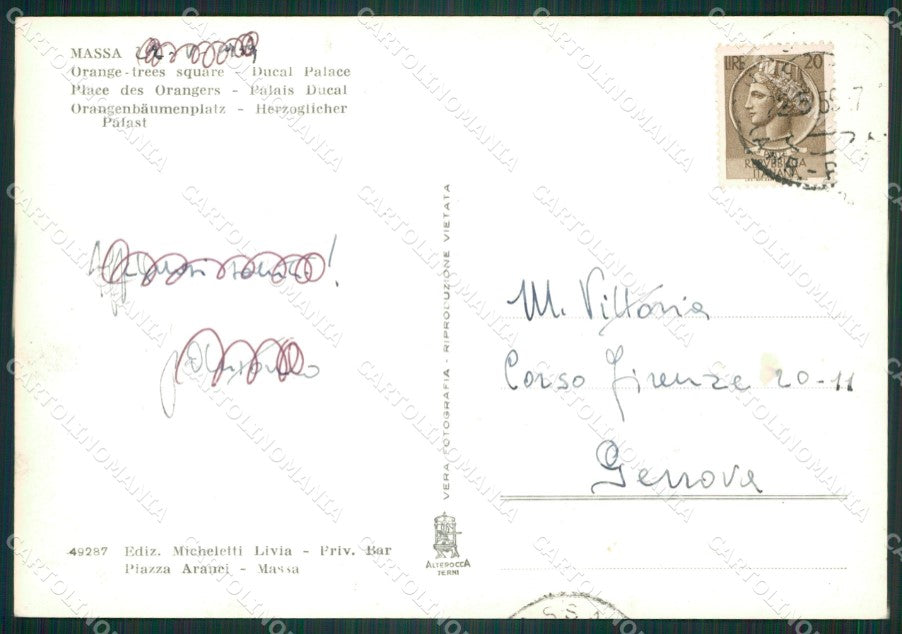 MASSA
Orange-trees square - Ducal Palace
Place des Orangers - Palais Ducal
Orangenbäumenplatz - Herzoglicher
Palast
49287 Ediz. Micheletti Livia - Priv. Bar
Piazza Aranci - Massa
VERA FOTOGRAFIA - RIPRODUZIONE VIETATA
ALTEROCCA
TERNI
LIRE 20
REPUBBLICA
ITALIANA
M. Vittoria
Corso Firenze 20-11
Genova
CARTOLINOMANIA